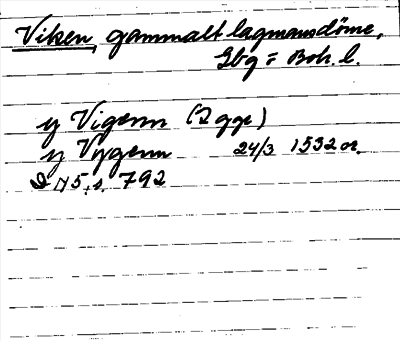 Viken, gammalt lagmansdöme,
Gbg = Boh. l.
y Vigenn (2 ggr)
y Vygenn 24/3 1532 or.
NS, s. 792